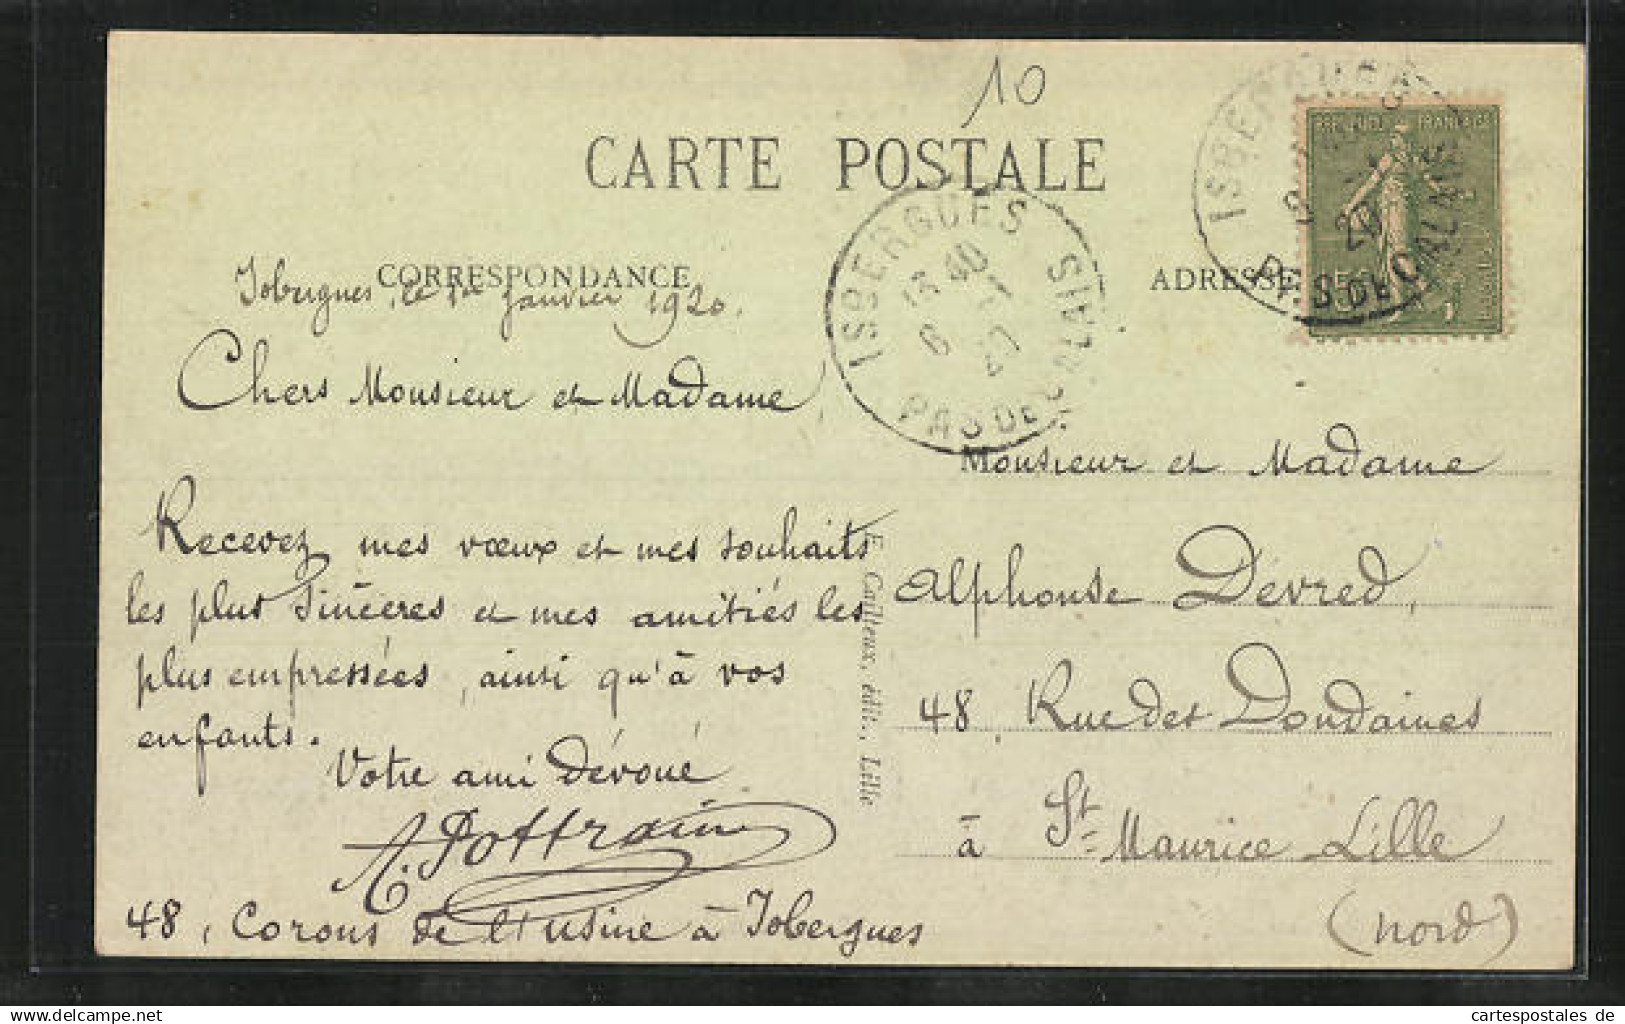 10
CARTE POSTALE
CORRESPONDANCE
ADRESSE
Isbergues, le 1er Janvier 1920.
Chers Monsieur et Madame
Recevez mes vœux et mes souhaits
les plus sincères et mes amitiés les
plus empressées, ainsi qu'à vos
enfants.
Votre ami dévoué
48, Corons de l'usine à Isbergues
E. Cailleux, édit., Lille
ISBERGUES
13 40
6 -1
20
PAS DE CALAIS
ISBERGUES
20
PAS DE CALAIS
Monsieur et Madame
Alphonse Dévred,
48, Rue des Dondaines
à St-Maurice Lille
(Nord)
www.cartespostales.de
cartespostales de